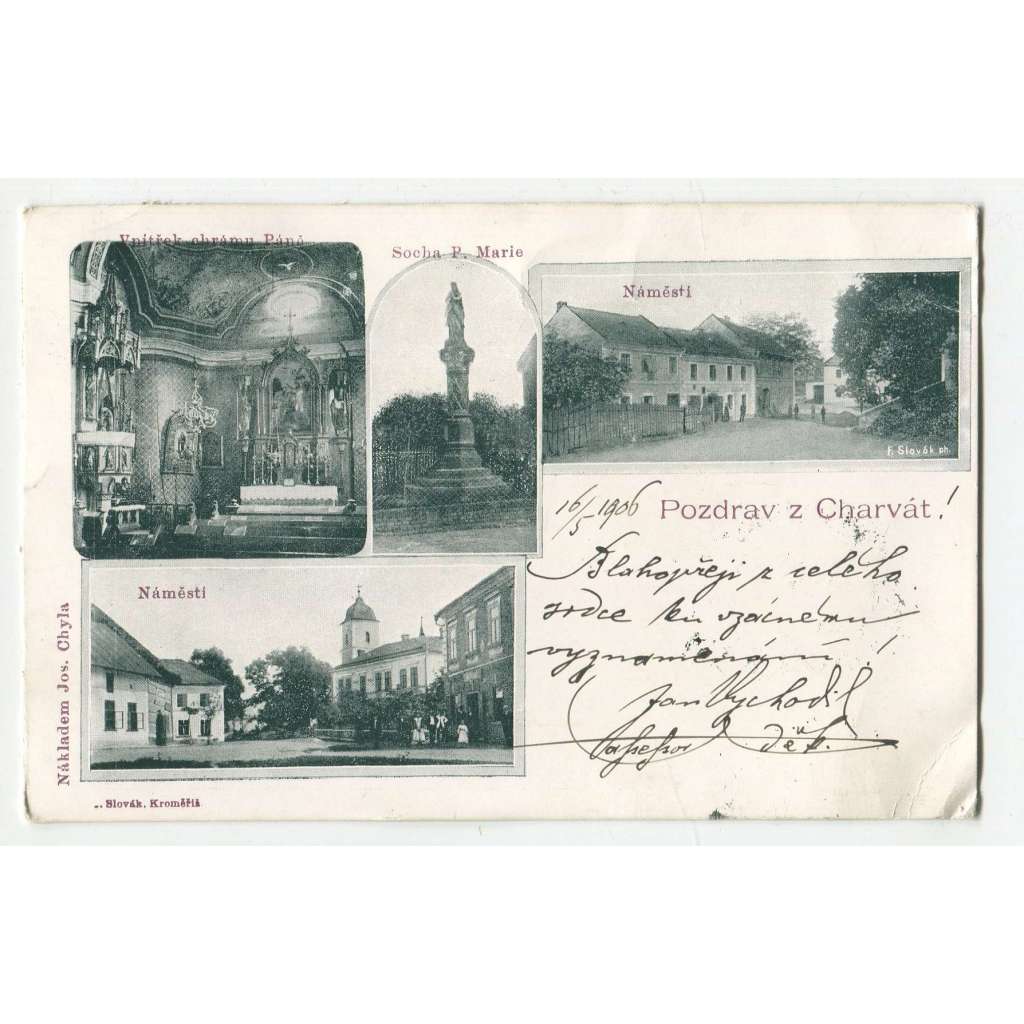 Vnitřek chrámu Páně
Socha P. Marie
Náměstí
F. Slovák ph.
16/5 1906 Pozdrav z Charvát!
Blahopřeji z celého
srdce ku vzácnému
vyznamenání!
Jan Vychodil
Náměsti
Nákladem Jos. Chyla
. Slovák, Kroměřiž